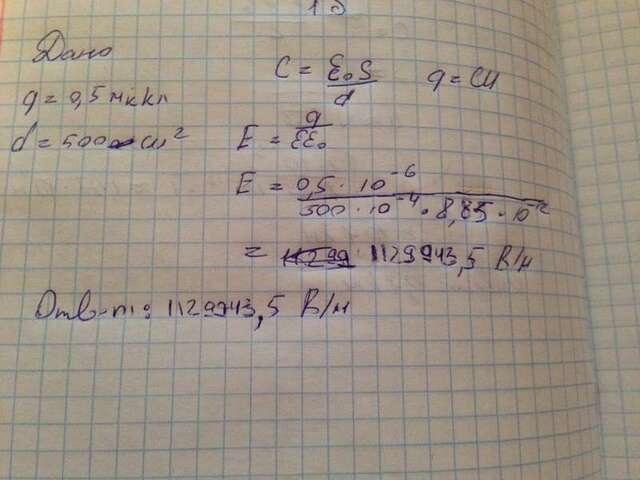 Дано
q = 0,5 мккл
d = 500 см²
C = ε₀S / d
q = CU
E = q / εε₀
E = 0,5 · 10⁻⁶ / 500 · 10⁻⁴ · 8,85 · 10⁻¹²
= 1129943,5 В/м
Отв-т: 1129943,5 В/м